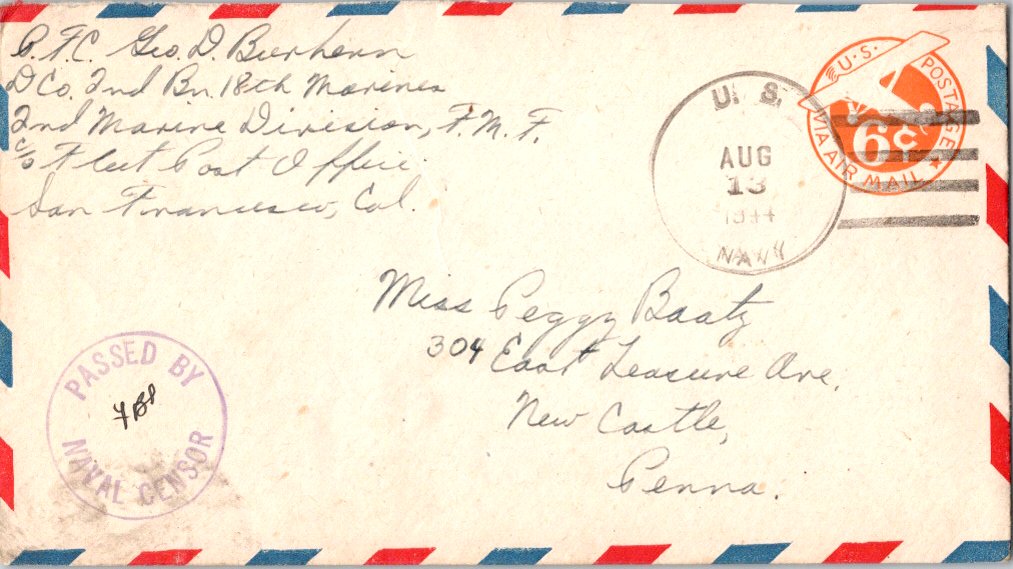 P.F.C. Geo. D.
D Co. 2nd Bn. 18th Marines
2nd Marine Division, F.M.F.
c/o Fleet Post Office
San Francisco, Cal.
U. S.
AUG
13
1944
NAVY
U.S. POSTAGE
6¢
VIA AIR MAIL
Miss Peggy Baatz
304 East Leasure Ave.
New Castle,
Penna.
PASSED BY
NAVAL CENSOR